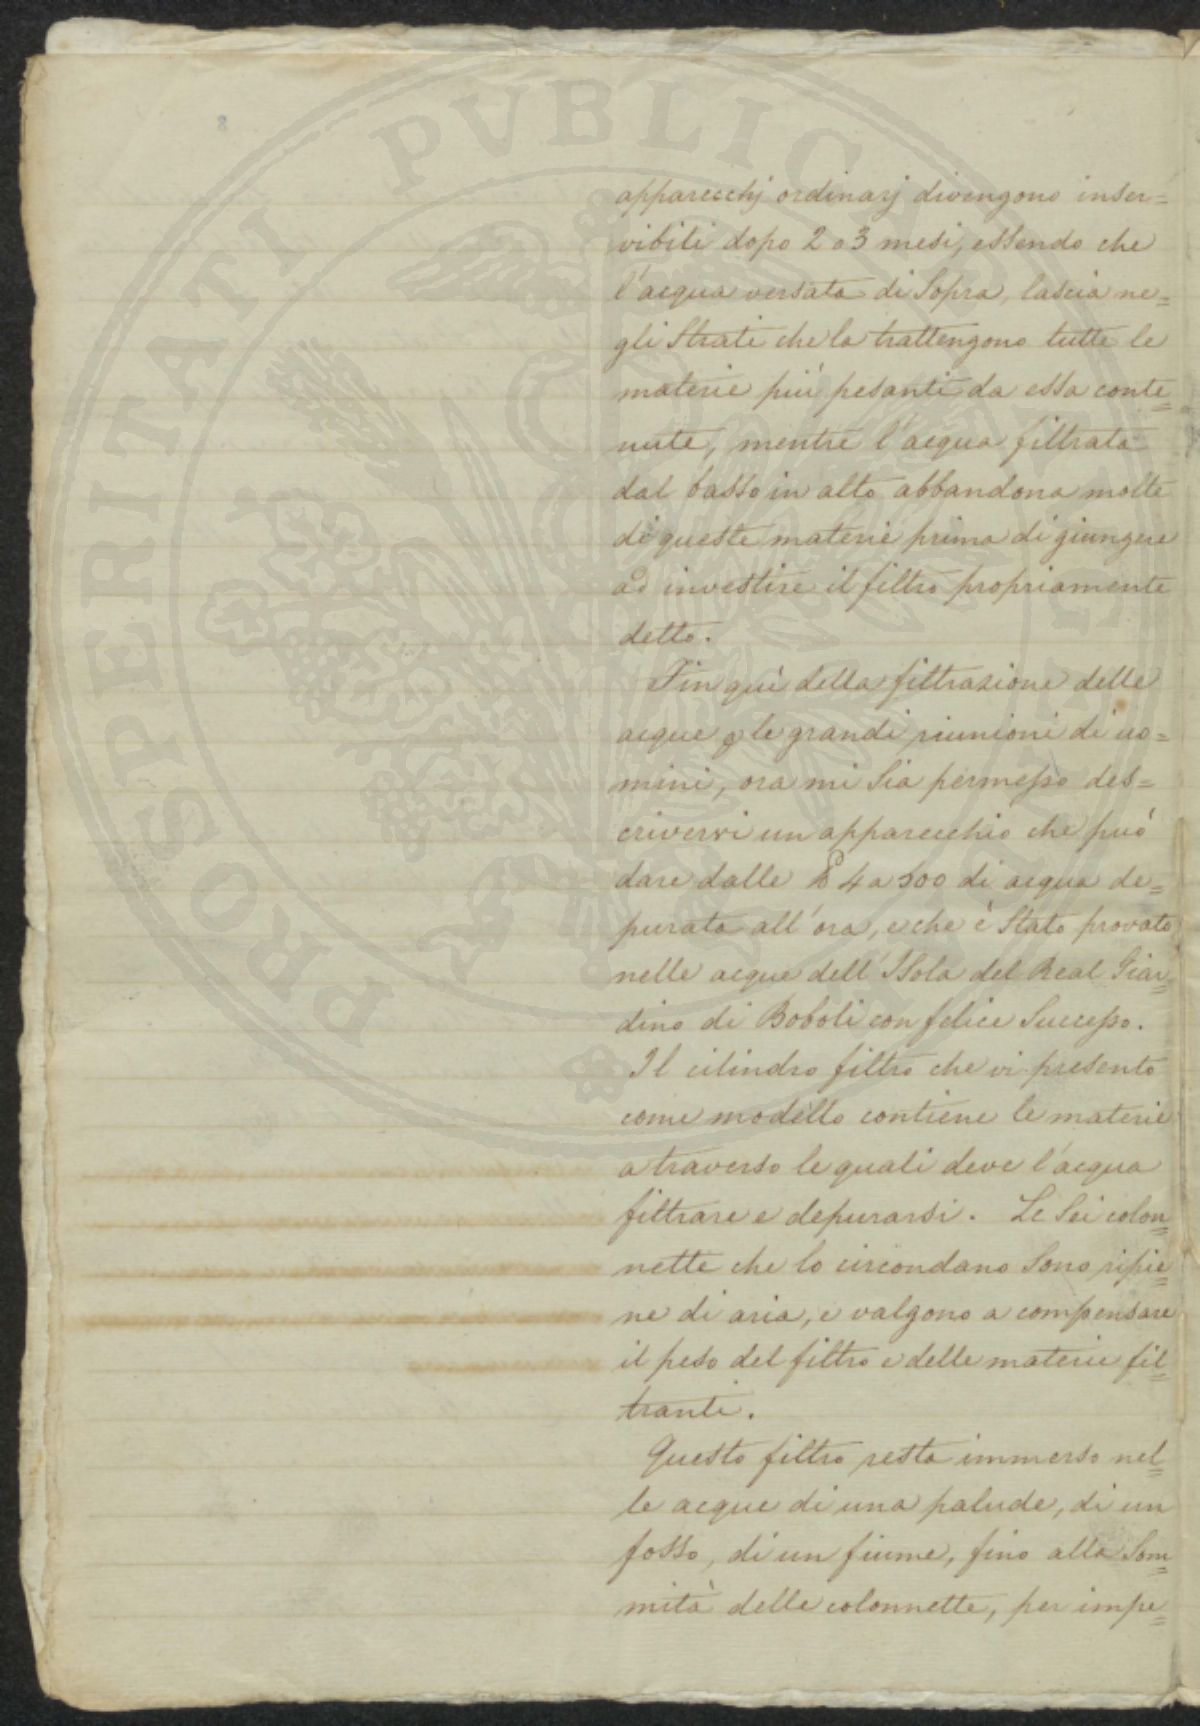 PROSPERITATI PVBLICAE
8
apparecchj ordinarj divengono inser=
vibili dopo 2 o 3 mesi, essendo che
l'acqua versata di Sopra, lascia ne=
gli Strati che la trattengono tutte le
materie più pesanti da essa conte=
nute, mentre l'acqua filtrata
dal basso in alto abbandona molte
di queste materie prima di giungere
ad investire il filtro propriamente
detto.
Fin quì della filtrazione delle
acque p le grandi riunioni di uo=
mini, ora mi Sia permesso des=
crivervi un apparecchio che può
dare dalle 4 a 500 di acqua de=
purata all'ora, e che è Stato provato
nelle acque dell'Isola del Real Giar=
dino di Boboli con felice Successo.
Il cilindro filtro che vi presento
come modello contiene le materie
a traverso le quali deve l'acqua
filtrare e depurarsi. Le Sei colon=
nette che lo circondano Sono ripie=
ne di aria, e valgono a compensare
il peso del filtro e delle materie fil=
tranti.
Questo filtro resta immerso nel=
le acque di una palude, di un
fosso, di un fiume, fino alla Som=
mità delle colonnette, per impe=